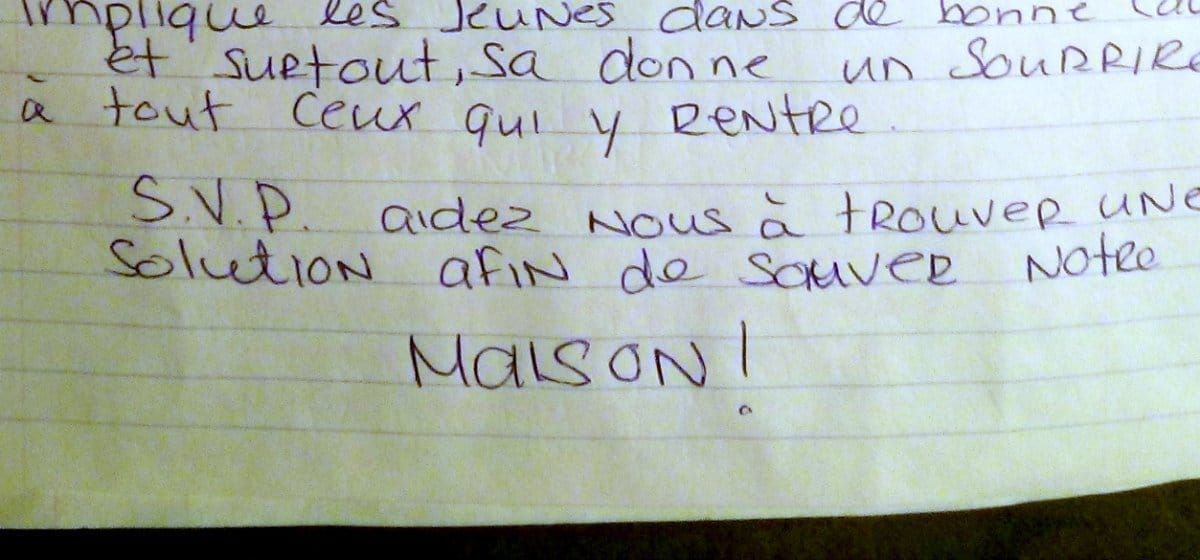 implique les jeunes dans de bonne
et surtout, sa donne un sourrire
à tout ceux qui y rentre.
S.V.P. aidez nous à trouver une
solution afin de sauver notre
Maison!